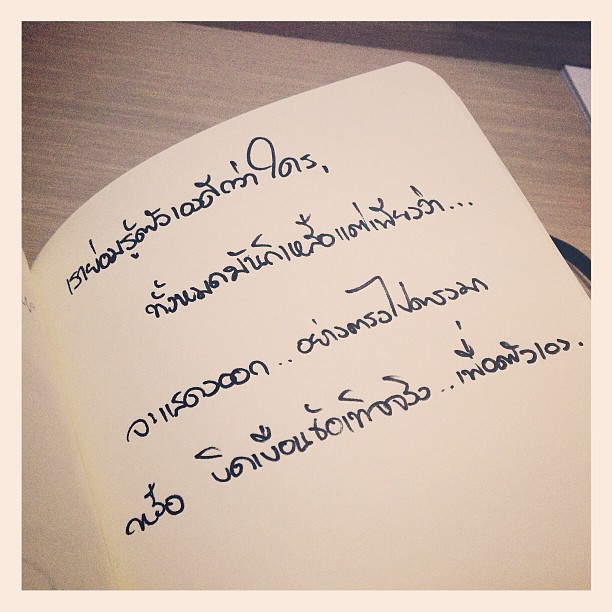 เราย่อมรู้ตัวเองดีกว่าใคร,
ทั้งหมดมันก็เหลือแต่เพียงว่า...
จะแสดงออก..อย่างตรงไปตรงมา
หรือ บิดเบือนข้อเท็จจริง..เพื่อตัวเอง.